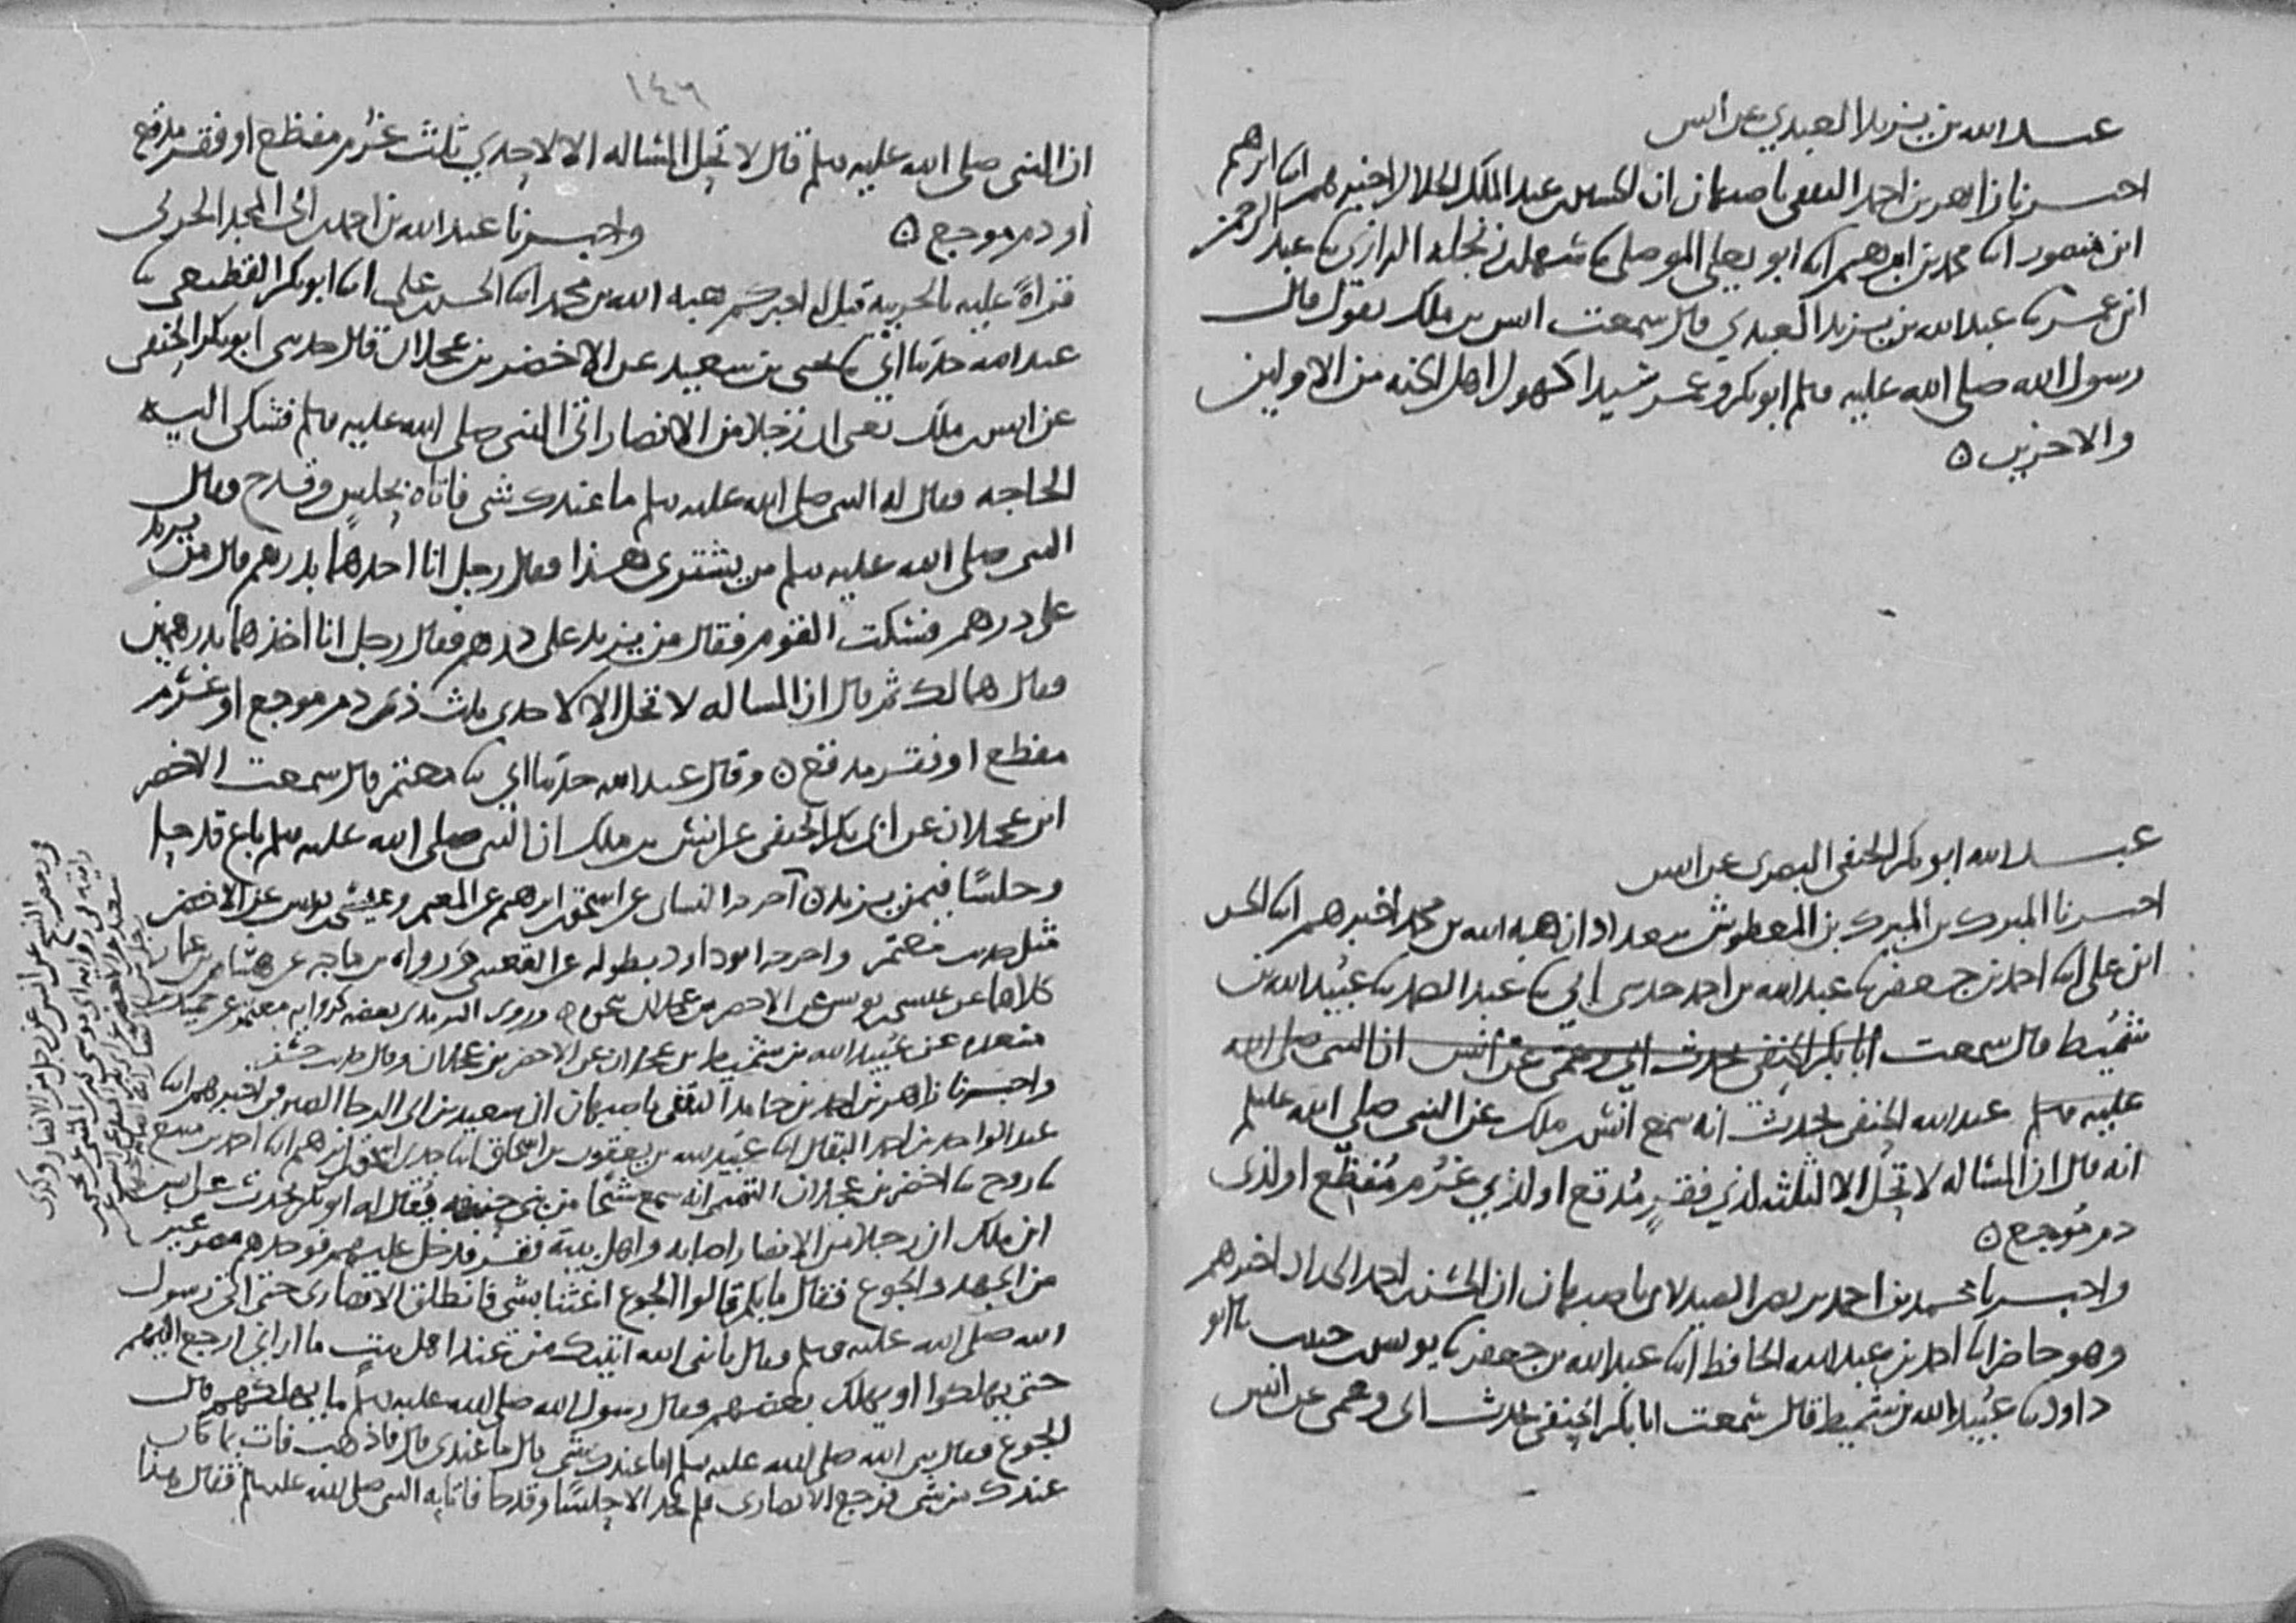 عبد الله بن يزيد العبدي عن انس
اخبرنا زاهر بن احمد الثقفي باصبهان ان الحسين بن عبد الملك الخلال اخبرهم ابنا ابرهيم
ابن منصور ابنا محمد بن ابرهيم ابنا ابو يعلى الموصلي ثنا سهل بن زنجلة الرازي ثنا عبد الرحمن
ابن عمر ثنا عبد الله بن يزيد العبدي قال سمعت انس بن ملك يقول قال
رسول الله صلى الله عليه وسلم ابو بكر وعمر سيدا كهول اهل الجنه من الاولين
والاخرين ٥
عبد الله ابو بكر الحنفي البصري عن انس
اخبرنا المبرك بن المبرك بن المعطوش ببغداد ان هبه الله بن محمد اخبرهم ابنا الحسن
ابن علي ابنا احمد بن جعفر ثنا عبد الله بن احمد حدثني ابي ثنا عبد الصمد ثنا عبيد الله بن
شميط قال سمعت ابا بكر الحنفي يحدث ابي وعمي عن انس ان النبي صلى الله
عليه وسلم عبد الله الحنفي يحدث انه سمع انس بن ملك عن النبي صلى الله عليه وسلم
انه قال ان المساله لا تحل الا لثلثه لذي فقر مدقع او لذي غرم مفظع او لذي
دم موجع ٥
واخبرنا محمد بن احمد بن نصر الصيدلاني باصبهان ان الحسن بن احمد الحداد اخبرهم
وهو حاضر ابنا احمد بن عبد الله الحافظ ابنا عبد الله بن جعفر ثنا يونس بن حبيب ثنا ابو
داود ثنا عبيد الله بن شميط قال سمعت ابا بكر الحنفي يحدث ابي وعمي عن انس
١٤٦
ان النبي صلى الله عليه وسلم قال لا تحل المساله الا لاحدي ثلث غرم مفظع او فقر مدقع
او دم موجع ٥ واخبرنا عبد الله بن احمد بن ابي المجد الحربي
قراة عليه بالحربيه قيل له اخبركم هبه الله بن محمد ابنا الحسن بن علي ابنا ابو بكر القطيعي ثنا
عبد الله حدثنا ابي ثنا يحيى بن سعيد عن الاخضر بن عجلان قال حدثني ابو بكر الحنفي
عن انس بن ملك ان رجلا من الانصار اتى النبي صلى الله عليه وسلم فشكى اليه
الحاجه فقال له النبي صلى الله عليه وسلم ما عندك شي فاتاه بحلس وقدح وقال
النبي صلى الله عليه وسلم من يشتري هذا فقال رجل انا اخذهما بدرهم قال من يزيد
على درهم فسكت القوم فقال من يزيد على درهم فقال رجل انا اخذهما بدرهمين
فقال هما لك ثم قال ان المساله لا تحل الا لاحدي ثلث ذي دم موجع او غرم
مفظع او فقر مدقع ٥ وقال عبد الله حدثنا ابي ثنا معتمر قال سمعت الاخضر
ابن عجلان عن ابي بكر الحنفي عن انس بن ملك ان النبي صلى الله عليه وسلم باع قدحا
وحلسا فيمن يزيد ٥ اخرجه النسائي عن اسحق بن ابرهيم عن المعتمر وعيسى بن يونس عن الاخضر
مثل حديث معتمر واخرجه ابو داود بطوله عن القعنبي ورواه بن ماجه عن هشام بن عمار
كلاهما عن عيسى بن يونس عن الاخضر بن عجلان وروى الترمذي بعضه عن حميد بن
مسعده عن عبيد الله بن شميط بن عجلان عن الاخضر بن عجلان وقال حديث حسن
واخبرنا زاهر بن احمد بن حامد الثقفي باصبهان ان سعيد بن ابي الرجا الصيرفي اخبرهم ابنا
عبد الواحد بن احمد البقال ابنا عبيد الله بن يعقوب بن اسحاق ابنا جدي اسحق بن ابرهيم ابنا احمد بن منيع
ثنا روح ثنا اخضر بن عجلان التميمي انه سمع شيخا من بني حنيفه يقال له ابو بكر يحدث عن انس
ابن ملك ان رجلا من الانصار اصابه واهل بيته فقر فدخل عليهم فوجدهم
من الجهد والجوع فقال ما بكم قالوا الجوع اغثنا بشي فانطلق الانصاري حتى اتى رسول
الله صلى الله عليه وسلم فقال يا نبي الله اتيتك من عند اهل بيت ما اراني ارجع اليهم
حتى يهلكوا او يهلك بعضهم فقال رسول الله صلى الله عليه وسلم ما يهلكهم قال
الجوع فقال نبي الله صلى الله عليه وسلم اما عندك شي قال ما عندي قال فاذهب فات بما كان
عندك من شي فرجع الانصاري فلم يجد الا حلسا وقدحا فاتا به النبي صلى الله عليه وسلم فقال هذا